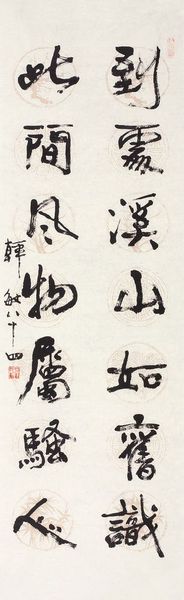 到處溪山如舊識
此間風物屬騷人
韓敏八十四